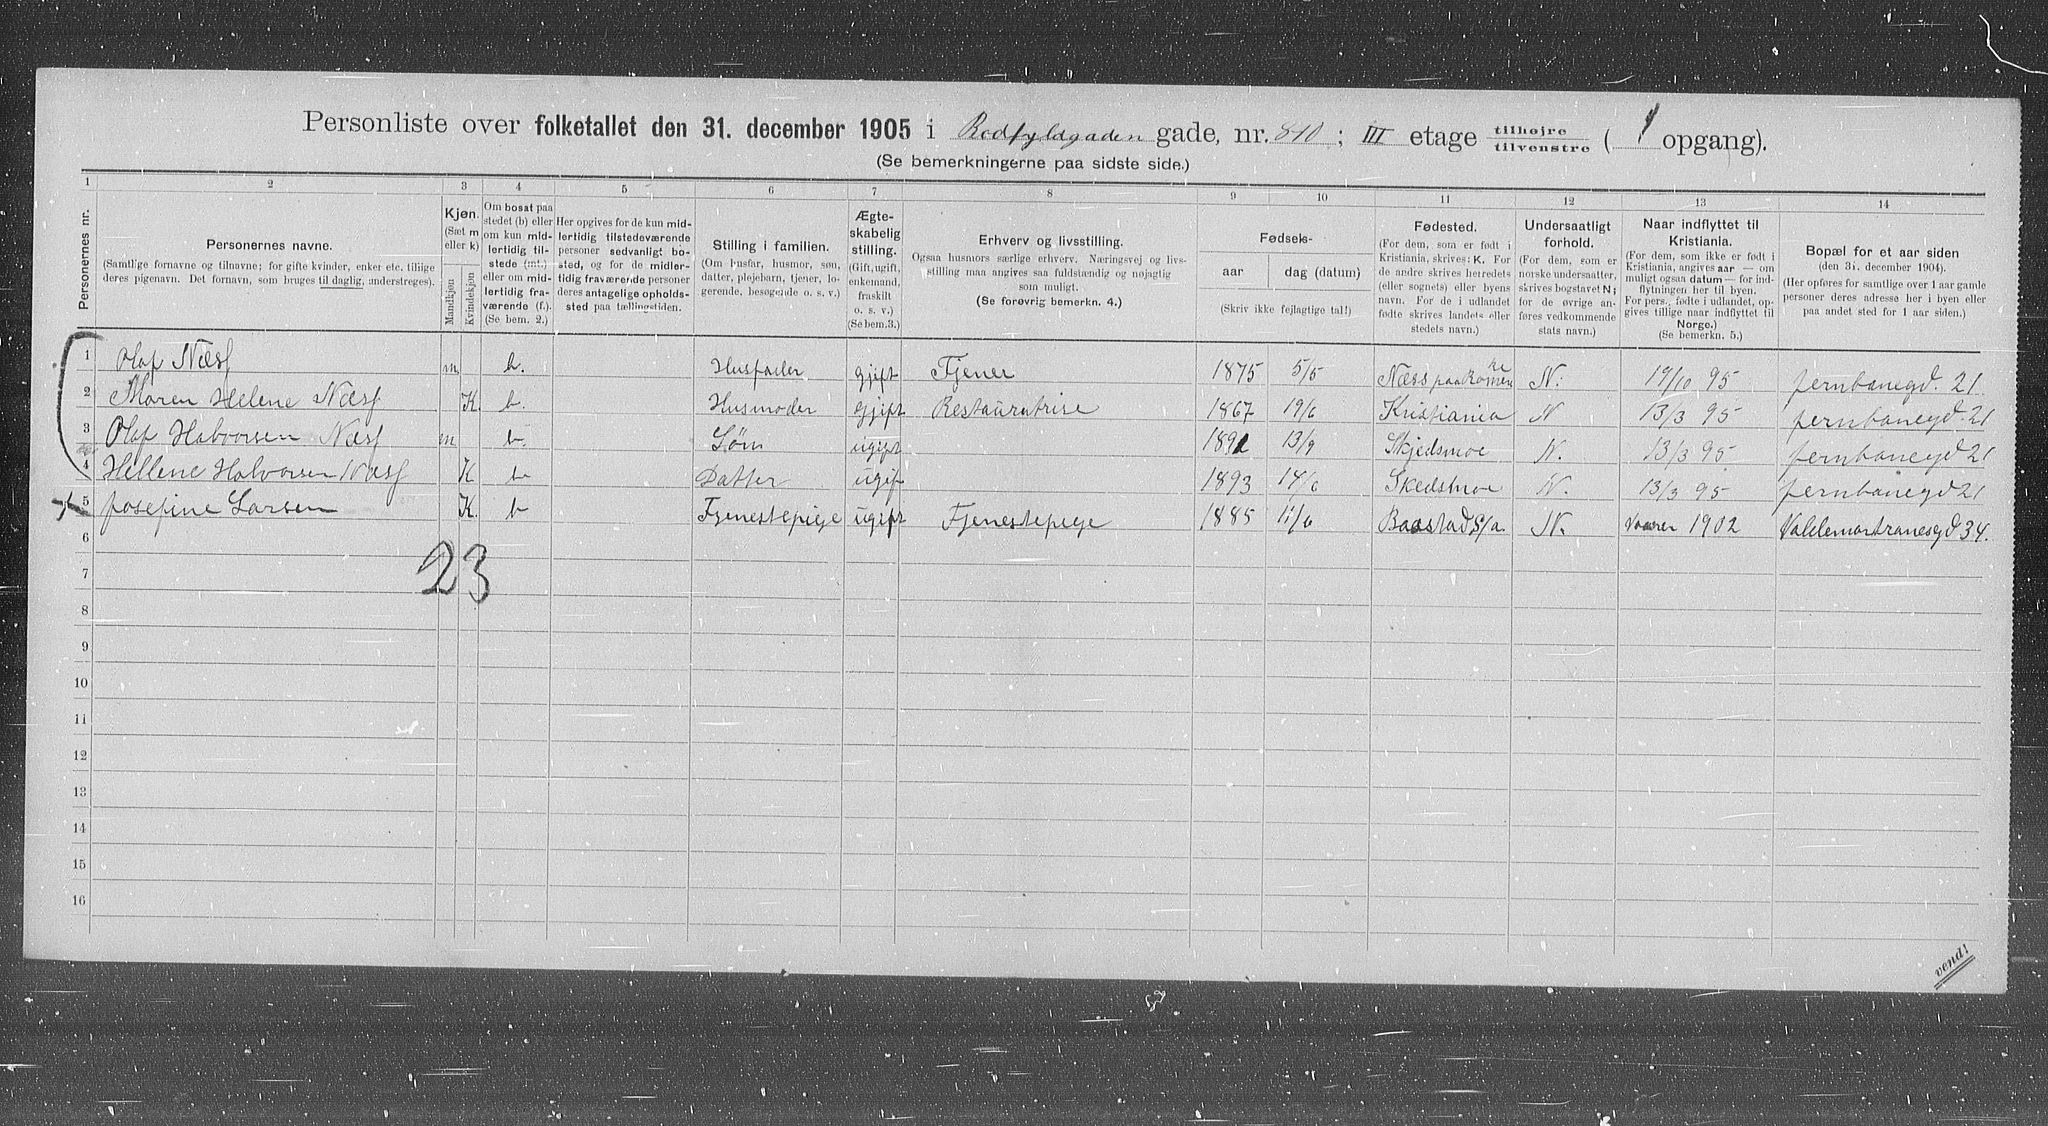 Personliste over folketallet den 31. december 1905 i Rodfyldgaden gade, nr. 8-10 ; III etage tilhøjre tilvenstre ( 1 opgang).
(Se bemerkningerne paa sidste side.)
1 2 3 4 5 6 7 8 9 10 11 12 13 14
Personernes nr.
Personernes navne.
(Samtlige fornavne og tilnavne; for gifte kvinder, enker etc. tillige deres pigenavn. Det fornavn, som bruges til daglig, understreges).
Kjøn.
(Sæt m eller k)
Mandkjøn
Kvindekjøn
Om bosat paa stedet (b) eller om kun midlertidig tilstede (mt.) eller om midlertidig fraværende (f.). (Se bem. 2.)
Her opgives for de kun midlertidig tilstedeværende personer sedvanligt bosted, og for de midlertidig fraværende personer deres antagelige opholdssted paa tællingstiden.
Stilling i familien.
(Om husfar, husmor, søn, datter, plejebarn, tjener, logerende, besøgende o. s. v.)
Ægteskabelig stilling.
(Gift, ugift, enkemand, fraskilt o. s. v.)
(Se bem. 3.)
Erhverv og livsstilling.
Ogsaa husmors særlige erhverv. Næringsvej og livsstilling maa angives saa fuldstændig og nøjagtig som muligt.
(Se forøvrig bemerkn. 4.)
Fødsels-
aar dag (datum)
(Skriv ikke fejlagtige tal!)
Fødested.
(For dem, som er født i Kristiania, skrives: K. For de andre skrives herredets (eller sognets) eller byens navn. For de i udlandet fødte skrives landets eller stedets navn.)
Undersaatligt forhold.
(For dem, som er norske undersaatter, skrives bogstavet N; for de øvrige anføres vedkommende stats navn.)
Naar indflyttet til Kristiania.
(For dem, som ikke er født i Kristiania, angives aar — om muligt ogsaa datum — for indflytningen her til byen.
For pers. fødte i udlandet, opgives tillige naar indflyttet til Norge.)
(Se bemerkn. 5.)
Bopæl for et aar siden
(den 31. december 1904).
(Her opføres for samtlige over 1 aar gamle personer deres adresse her i byen eller paa andet sted for 1 aar siden.)
1 Olaf Næss m b. Husfader gjift Tjener 1875 5/5 Næss paa Romerike N. 19/10 95 jernbanegd. 21
2 Maren Helene Næss K. b. Husmoder gjift Restauratrise 1867 19/6 Kristiania N 13/3 95 jernbanegd. 21
3 Olaf Halvorsen Næss m b Søn ugift 1891 13/9 Skjedsmoe N. 13/3 95 jernbanegd 21
4 Hellene Halvorsen Næss K b Datter ugif 1893 14/6 Skedsmoe N. 13/3 95 jernbanegd 21
5 Josefine Larsen K. b Tjenestepige ugift Tjenestepige 1885 11/6 Baastad s/a N. Vaaren 1902 Valdemartranesgd 34.
6
23
7
8
9
10
11
12
13
14
15
16
vend!